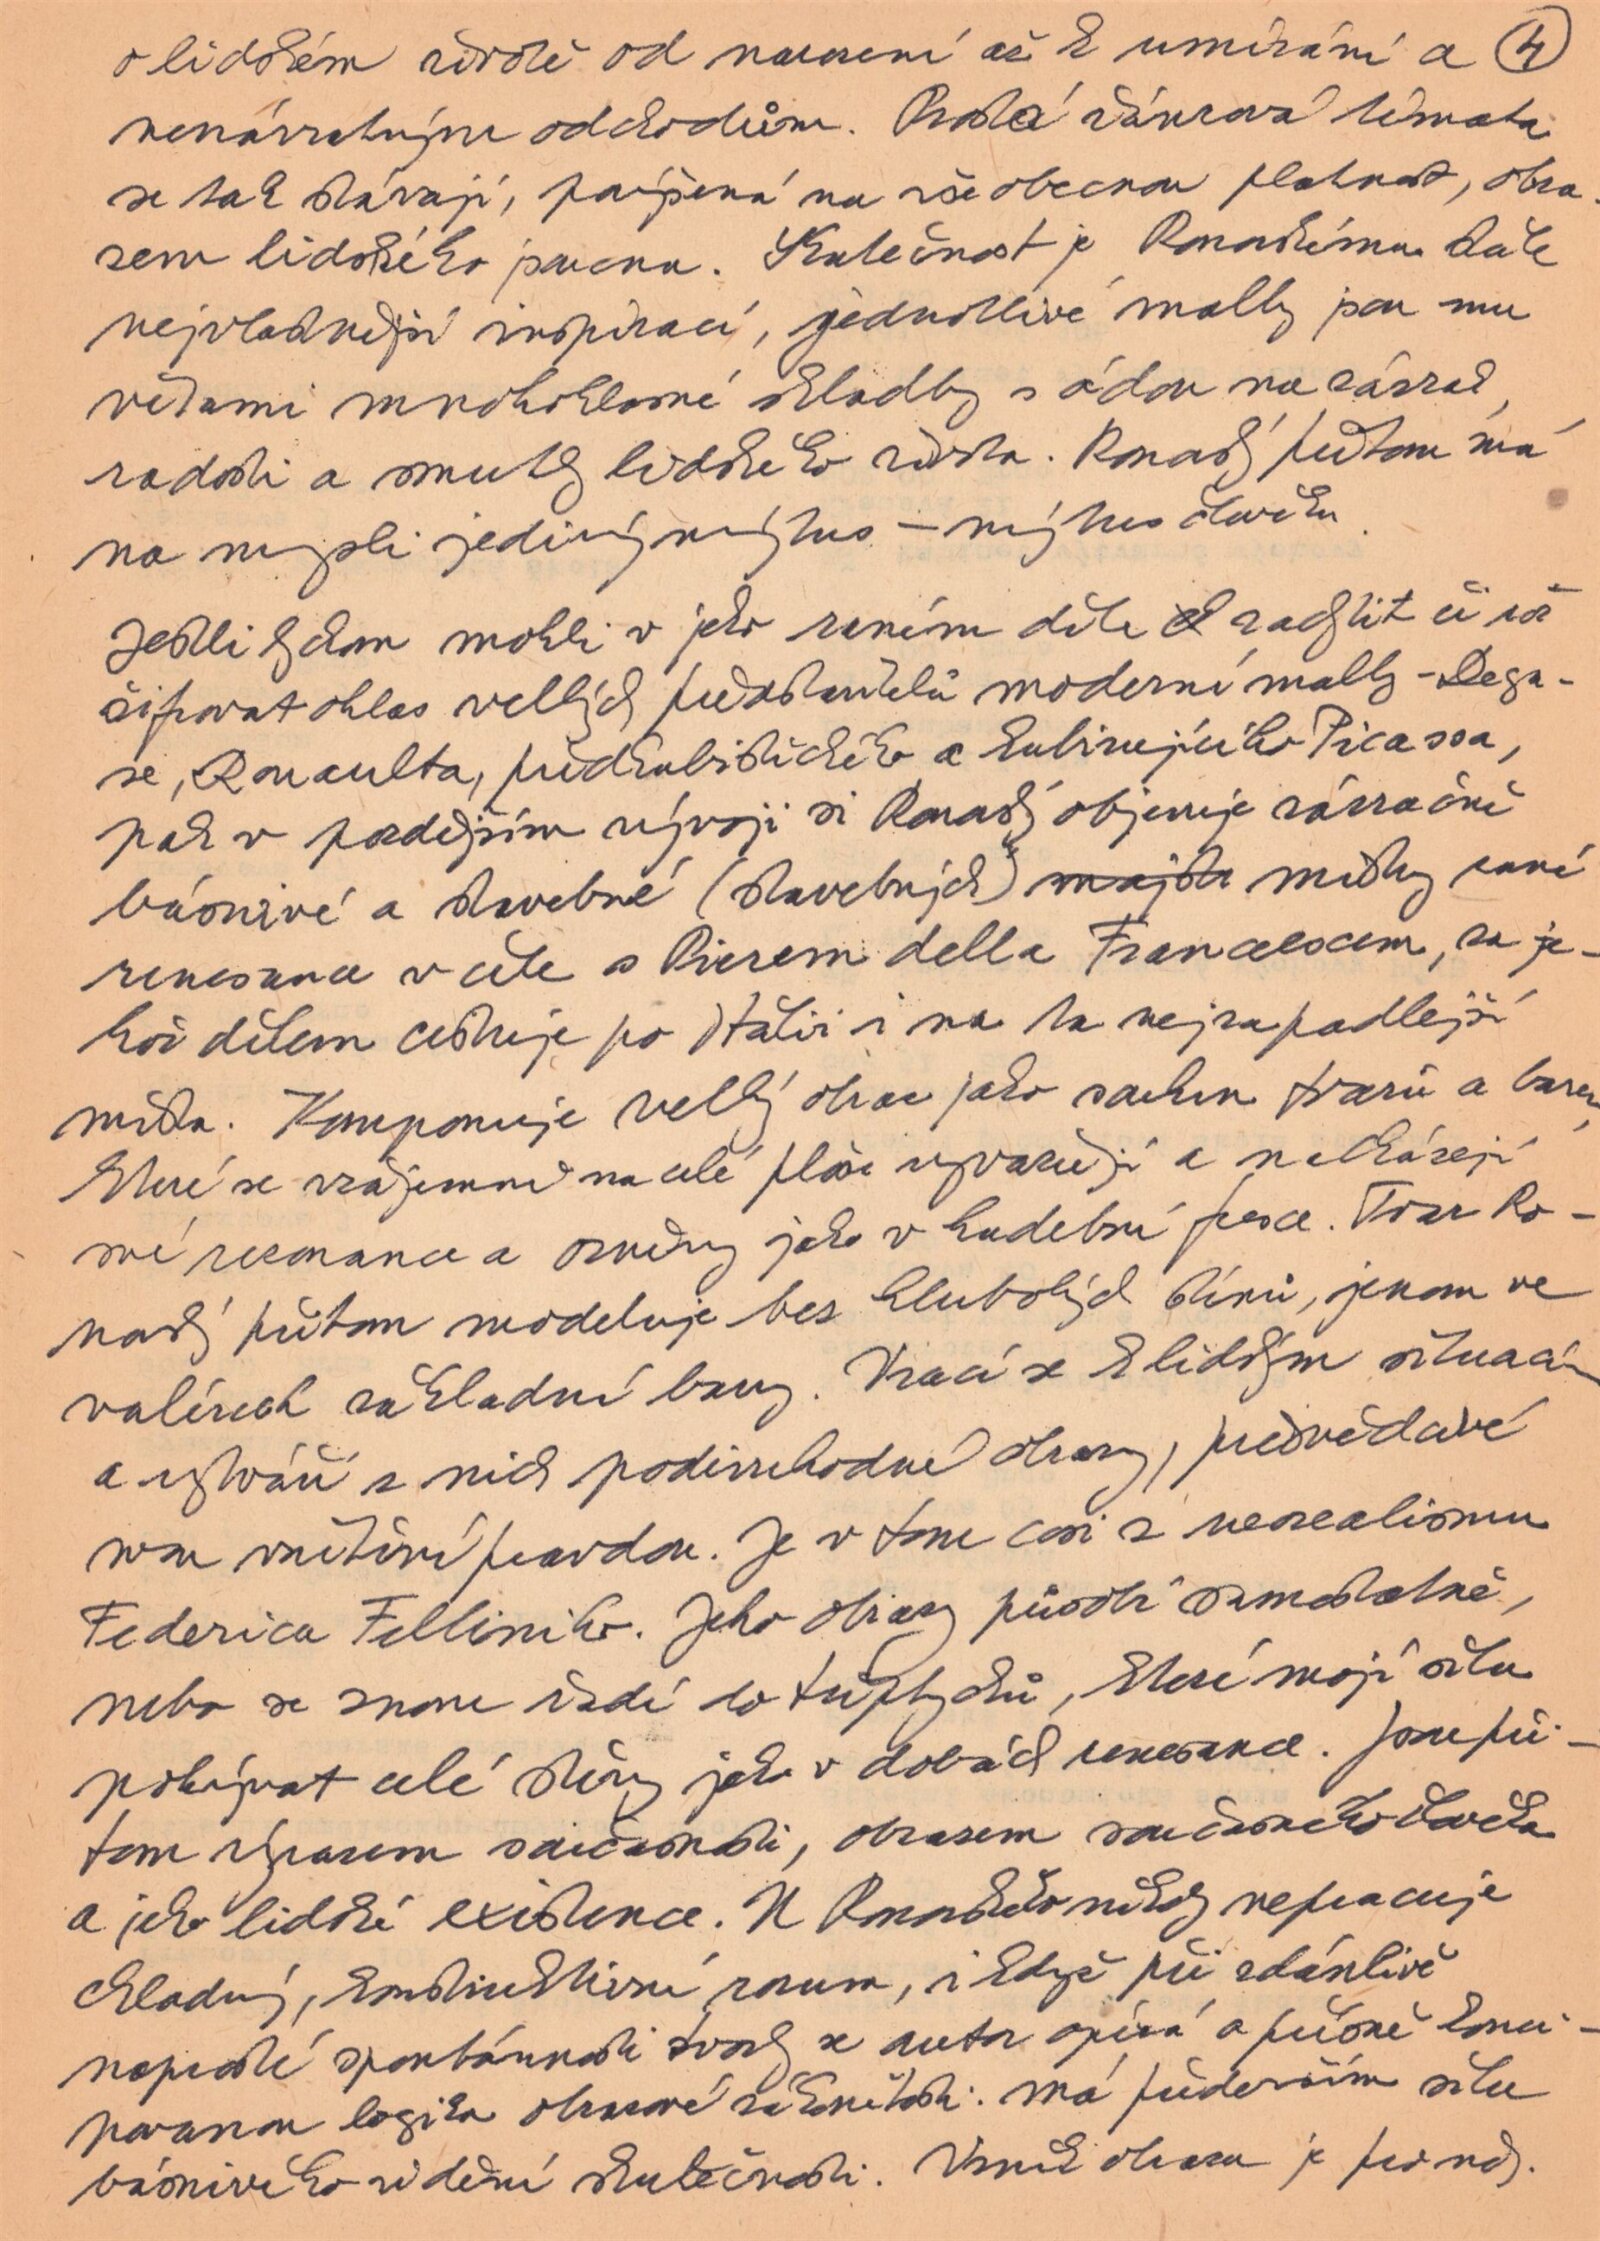 o lidském životě od narození až k umírání a ④
nenávratným odchodům. Prostá žánrová témata
se tak stávají, povýšená na všeobecnou platnost, obra-
zem lidského pocenu. Skutečnost je Ronovskému stále
nejvlastnější inspirací, jednotlivé malby jsou mu
větami mnohohlasné skladby s ódou na zázrak,
radosti a smutky lidského života. Ronovský přitom má
na mysli jediný mýtus – mýtus člověka.
Jestli bychom mohli v jeho raném díle zachytit či roz
šifrovat ohlas velkých představitelů moderní malby – Dega-
se, Rouaulta, předkubistického a kubizujícího Picassa,
pak v pozdějším vývoji si Ronovský objevuje zázračné
básnivé a stavebné (stavebných) mistry rané
renesance v čele s Pierem della Francescem, za je-
hož dílem cestuje po Itálii i na ta nejzapadlejší
místa. Komponuje velký obraz jako souhrn tvarů a barev,
které se vzájemně na celé ploše vyvažují a nacházejí
své rezonance a ozvěny jako v hudební frese. Tvar Ro-
novský přitom modeluje bez hlubokých stínů, jenom ve
valérech základní barvy. Vrací se k lidským situacím
a vytváří z nich podivuhodné obrazy, přesvědčivé
svou vnitřní pravdou. Je v tom cosi z neorealismu
Federica Felliniho. Jeho obrazy působí samostatně,
nebo se znovu řadí do triptychů, které mají sílu
pokrývat celé stěny jako v dobách renesance. Jsou při-
tom výrazem současnosti, obrazem současného člověka
a jeho lidské existence. U Ronovského nikdy nepracuje
chladný, konstruktivní rozum, i když při zdánlivě
naprosté spontánnosti tvorby se autor opírá o přísně konci-
povanou logiku obrazové zákonitosti. Má především sílu
básnivého vidění skutečnosti. Vznik obrazu je prvndy.